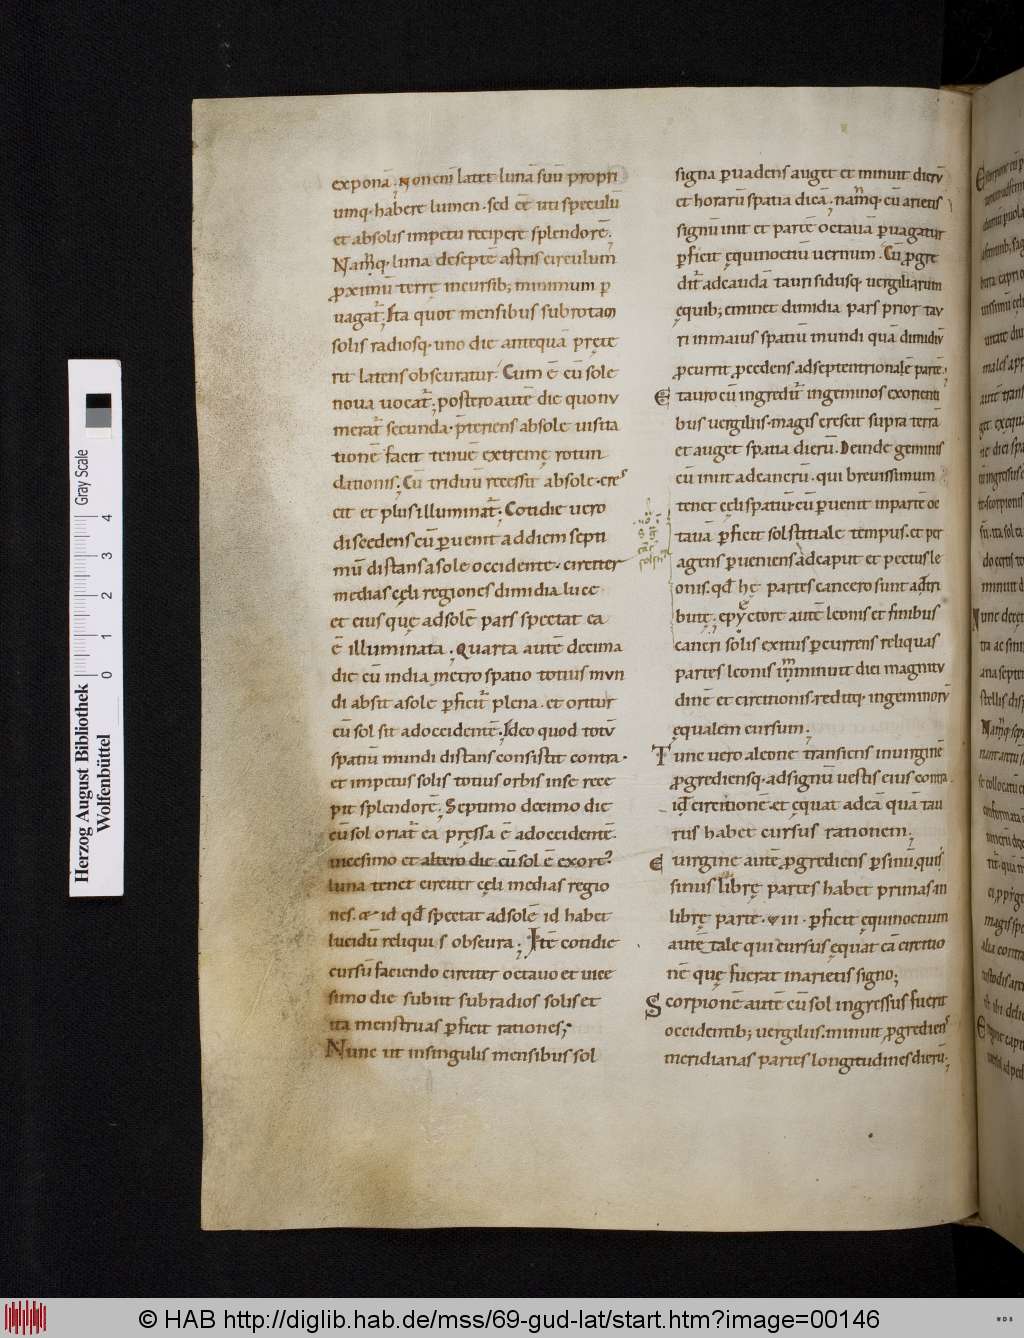 exponā. Non enī latet lunā suū propri
umq· habere lumen· sed eē uti speculū
et absolis impetu recipere splendorē.
Namq· luna deseptē astris circulum
proximū terrę incursib; minimum p
vagat̄. Ita quot mensibus subrotam
solis radiosq· uno die antequā pręte
rit latens obscuratur. Cum ē cū sole
nova vocat̄; postero autē die quo nu
merat̄ secunda· p̄teriens absole visita
tionē facit tenuē extremę rotun
dationis. Cū triduū recessit absole· cres
cit et plus illuminat̄. Cotidie vero
discedens cū pervenit ad diem septi
mū distans a sole occidente· circiter
medias cęli regiones dimidia lucet
et eius quę ad solē pars spectat ea
ē illuminata. Quarta autē decima
die cū in diametro spatio totius mun
di absit a sole perficit̄ plena· et oritur
cū sol sit ad occidentē. Ideo quod totū
spatiū mundi distans consistit contra·
et impetus solis totius orbis in se rece
pit splendorē. Septimo decimo die
cū sol oriat̄ ea pręssa ē ad occidentē.
vicesimo et altero die cū sol ē exort̄
luna tenet circiter cęli medias regio
nes. & id qd̄ spectat ad solē id habet
lucidū reliquis obscura. Itē cotidie
cursū faciendo circiter octavo et vice
simo die subiit sub radios solis et
ita menstruas perficit rationes;
Nunc ut in singulis mensibus sol
signa pervadens auget et minuit dierū
et horarū spatia dicā. namq· cū arietis
signū init et partē octavā pervagatur
perficit ęquinoctiū vernum. Cū progre
dit̄ ad caudā tauri sidusq· vergiliarum
ęquib; eminet dimidia pars prior tau
ri in maius spatiū mundi quā dimidiū
procurrit procedens ad septentrionalē partē.
E tauro cū ingredit̄ in geminos exorienti
bus vergiliis· magis crescit supra terrā
et auget spatia dierū. Deinde geminis
cū init ad cancrū· qui brevissimum
tenet cęli spatiū· cū pervenit in partē oc
tavā perficit solstitiale tempus. et per
agens perveniens ad caput et pectus le
onis. qd̄ hę partes cancero sunt adtri
butę. epyctore autē leonis et finibus
cancri solis exitus percurrens reliquas
partes leonis imminuit diei magnitu
dinē et circitionis. reditq· in geminorū
ęqualem cursum.
Tunc vero a leone transiens in virginē
progrediensq· ad signū vestis eius contra
id circitionē. et ęquat ad eā quā tau
rus habet cursus rationem.
E virgine autē progrediens per sinū. quis
sinus librę partes habet primas in
librę partē · VIII · perficit ęquinoctium
autūtale qui cursus ęquat eā circitio
nē quę fuerat in arietis signo;
Scorpionē autē cū sol ingressus fuerit
occidentib; vergiliis. minuit progrediens
meridianas partes longitudines dierū.
Herzog August Bibliothek
Wolfenbüttel
0 1 2 3 4
Gray Scale
© HAB http://diglib.hab.de/mss/69-gud-lat/start.htm?image=00146